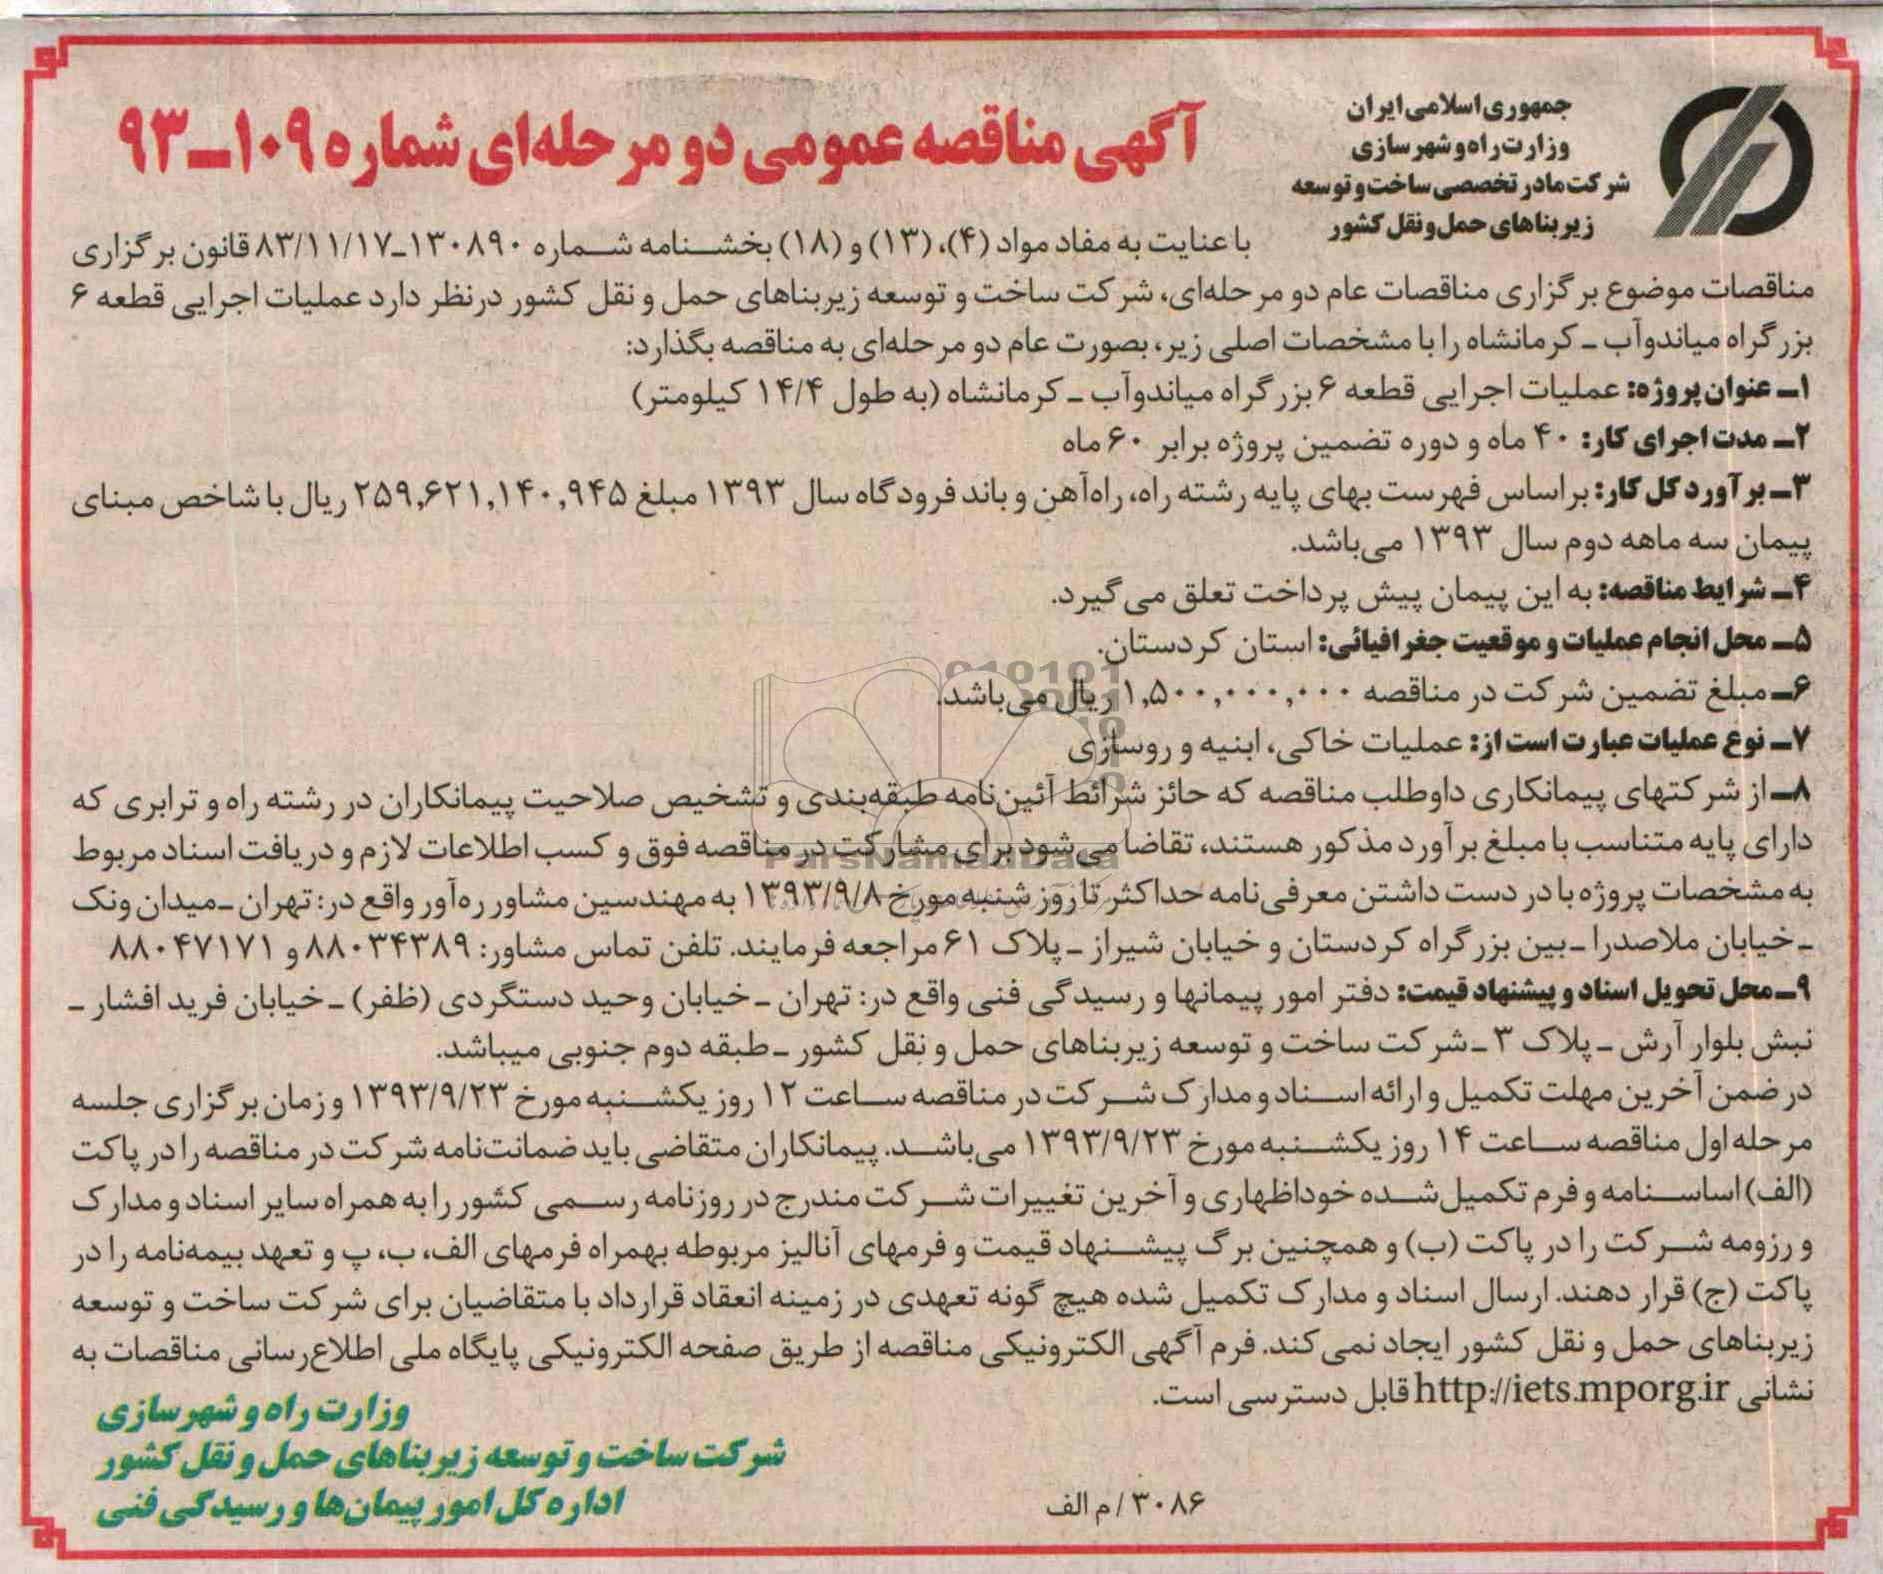 جمهوری اسلامی ایران
وزارت راه و شهرسازی
شرکت مادر تخصصی ساخت و توسعه
زیربناهای حمل و نقل کشور
آگهی مناقصه عمومی دو مرحله‌ای شماره ۱۰۹ـ۹۳
با عنایت به مفاد مواد (۴)، (۱۳) و (۱۸) بخشنامه شماره ۱۳۰۸۹۰ـ۸۳/۱۱/۱۷ قانون برگزاری
مناقصات موضوع برگزاری مناقصات عام دو مرحله‌ای، شرکت ساخت و توسعه زیربناهای حمل و نقل کشور درنظر دارد عملیات اجرایی قطعه ۶
بزرگراه میاندوآب ـ کرمانشاه را با مشخصات اصلی زیر، بصورت عام دو مرحله‌ای به مناقصه بگذارد:
۱ـ عنوان پروژه: عملیات اجرایی قطعه ۶ بزرگراه میاندوآب ـ کرمانشاه (به طول ۱۴/۴ کیلومتر)
۲ـ مدت اجرای کار: ۴۰ ماه و دوره تضمین پروژه برابر ۶۰ ماه
۳ـ برآورد کل کار: براساس فهرست بهای پایه رشته راه، راه‌آهن و باند فرودگاه سال ۱۳۹۳ مبلغ ۲۵۹,۶۲۱,۱۴۰,۹۴۵ ریال با شاخص مبنای
پیمان سه ماهه دوم سال ۱۳۹۳ می‌باشد.
۴ـ شرایط مناقصه: به این پیمان پیش پرداخت تعلق می‌گیرد.
۵ـ محل انجام عملیات و موقعیت جغرافیائی: استان کردستان.
۶ـ مبلغ تضمین شرکت در مناقصه ۱,۵۰۰,۰۰۰,۰۰۰ ریال می‌باشد.
۷ـ نوع عملیات عبارت است از: عملیات خاکی، ابنیه و روسازی
۸ـ از شرکتهای پیمانکاری داوطلب مناقصه که حائز شرائط آئین‌نامه طبقه‌بندی و تشخیص صلاحیت پیمانکاران در رشته راه و ترابری که
دارای پایه متناسب با مبلغ برآورد مذکور هستند، تقاضا می‌شود برای مشارکت در مناقصه فوق و کسب اطلاعات لازم و دریافت اسناد مربوط
به مشخصات پروژه با در دست داشتن معرفی‌نامه حداکثر تا روز شنبه مورخ ۱۳۹۳/۹/۸ به مهندسین مشاور ره‌آور واقع در: تهران ـ میدان ونک
ـ خیابان ملاصدرا ـ بین بزرگراه کردستان و خیابان شیراز ـ پلاک ۶۱ مراجعه فرمایند. تلفن تماس مشاور: ۸۸۰۳۴۳۸۹ و ۸۸۰۴۷۱۷۱
۹ـ محل تحویل اسناد و پیشنهاد قیمت: دفتر امور پیمانها و رسیدگی فنی واقع در: تهران ـ خیابان وحید دستگردی (ظفر) ـ خیابان فرید افشار ـ
نبش بلوار آرش ـ پلاک ۳ ـ شرکت ساخت و توسعه زیربناهای حمل و نقل کشور ـ طبقه دوم جنوبی میباشد.
در ضمن آخرین مهلت تکمیل و ارائه اسناد و مدارک شرکت در مناقصه ساعت ۱۲ روز یکشنبه مورخ ۱۳۹۳/۹/۲۳ و زمان برگزاری جلسه
مرحله اول مناقصه ساعت ۱۴ روز یکشنبه مورخ ۱۳۹۳/۹/۲۳ می‌باشد. پیمانکاران متقاضی باید ضمانت‌نامه شرکت در مناقصه را در پاکت
(الف) اساسنامه و فرم تکمیل شده خوداظهاری و آخرین تغییرات شرکت مندرج در روزنامه رسمی کشور را به همراه سایر اسناد و مدارک
و رزومه شرکت را در پاکت (ب) و همچنین برگ پیشنهاد قیمت و فرمهای آنالیز مربوطه بهمراه فرمهای الف، ب، پ و تعهد بیمه‌نامه را در
پاکت (ج) قرار دهند. ارسال اسناد و مدارک تکمیل شده هیچ گونه تعهدی در زمینه انعقاد قرارداد با متقاضیان برای شرکت ساخت و توسعه
زیربناهای حمل و نقل کشور ایجاد نمی‌کند. فرم آگهی الکترونیکی مناقصه از طریق صفحه الکترونیکی پایگاه ملی اطلاع‌رسانی مناقصات به
نشانی http://iets.mporg.ir قابل دسترسی است.
وزارت راه و شهرسازی
شرکت ساخت و توسعه زیربناهای حمل و نقل کشور
اداره کل امور پیمان‌ها و رسیدگی فنی
۳۰۸۶ / م الف
ParsNamadData